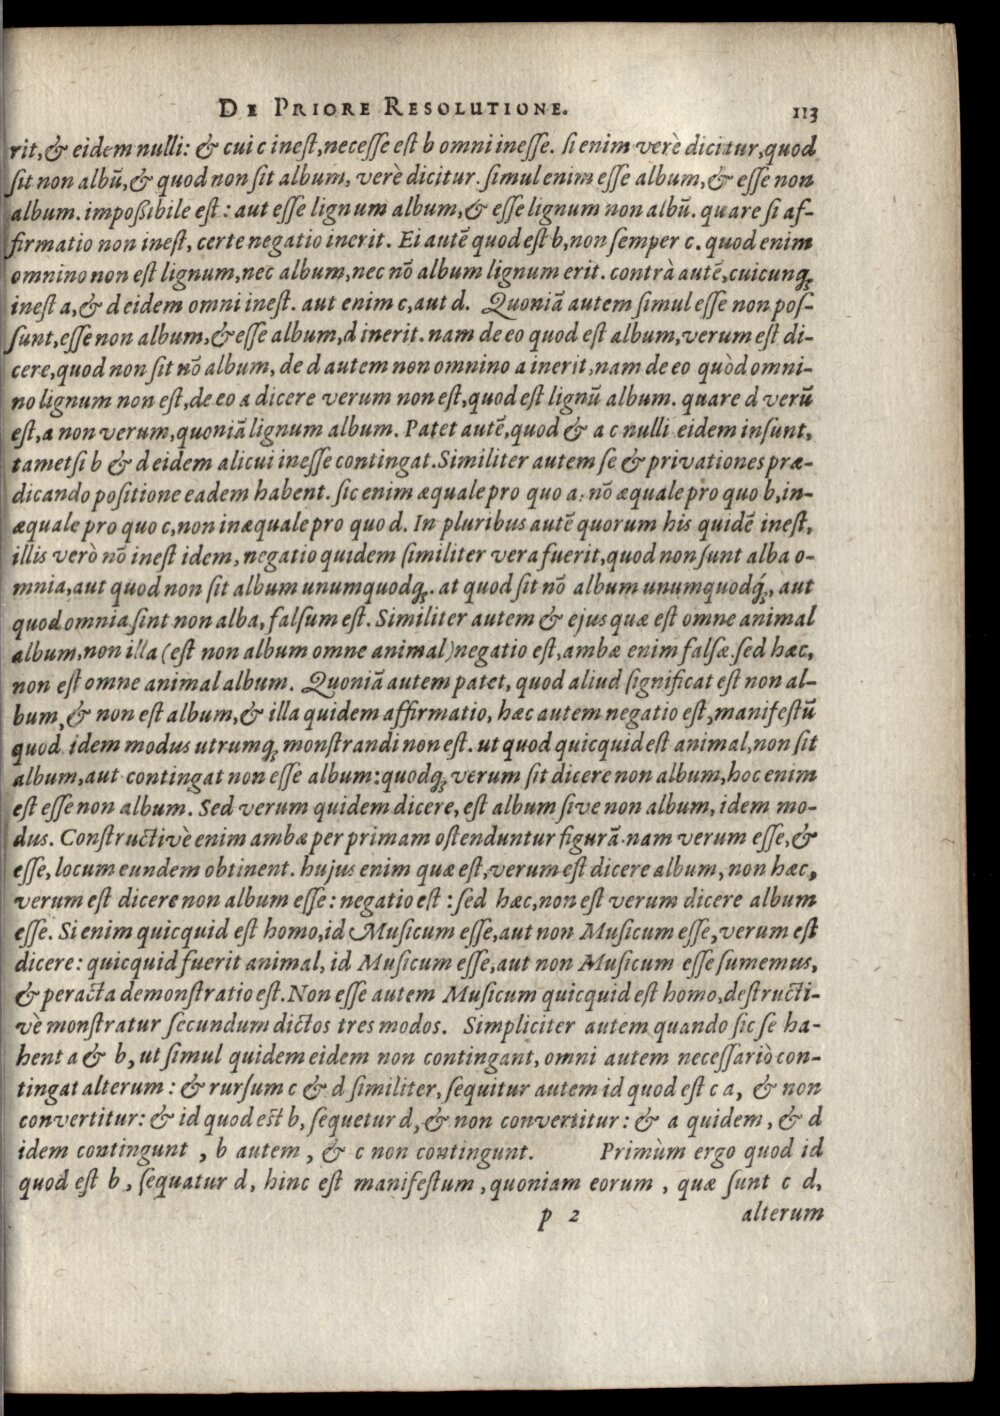 DE PRIORE RESOLUTIONE. 113
rit,& eidem nulli: & cui c inest,necesse est b omni inesse. si enim verè dicitur,quod
sit non albū,& quod non sit album, verè dicitur. simul enim esse album,& esse non
album. impoßibile est: aut esse lignum album,& esse lignum non albū. quare si af-
firmatio non inest, certe negatio inerit. Ei autē quod est b,non semper c. quod enim
omnino non est lignum,nec album,nec nō album lignum erit. contrà autē,cuicunq;
inest a,& d eidem omni inest. aut enim c,aut d. Quoniā autem simul esse non pos-
sunt,esse non album,& esse album,d inerit. nam de eo quod est album,verum est di-
cere,quod non sit nō album, de d autem non omnino a inerit,nam de eo quòd omni-
no lignum non est,de eo a dicere verum non est,quod est lignū album. quare d verū
est,a non verum,quoniā lignum album. Patet autē,quod & a c nulli eidem insunt,
tametsi b & d eidem alicui inesse contingat. Similiter autem se & privationes præ-
dicando positione eadem habent. sic enim æquale pro quo a, nō æquale pro quo b,in-
æquale pro quo c,non inæquale pro quo d. In pluribus autē quorum his quidē inest,
illis verò nō inest idem, negatio quidem similiter vera fuerit,quod non sunt alba o-
mnia,aut quod non sit album unumquodq;. at quod sit nō album unumquodq;, aut
quod omnia sint non alba, falsum est. Similiter autem & ejus quæ est omne animal
album,non illa (est non album omne animal) negatio est,ambæ enim falsæ. sed hæc,
non est omne animal album. Quoniā autem patet, quod aliud significat est non al-
bum, & non est album,& illa quidem affirmatio, hæc autem negatio est, manifestū
quod idem modus utrumq; monstrandi non est. ut quod quicquid est animal,non sit
album,aut contingat non esse album: quodq; verum sit dicere non album,hoc enim
est esse non album. Sed verum quidem dicere, est album sive non album, idem mo-
dus. Constructivè enim ambæ per primam ostenduntur figurā. nam verum esse,&
esse, locum eundem obtinent. hujus enim quæ est,verum est dicere album, non hæc,
verum est dicere non album esse: negatio est : sed hæc,non est verum dicere album
esse. Si enim quicquid est homo,id Musicum esse,aut non Musicum esse, verum est
dicere: quicquid fuerit animal, id Musicum esse,aut non Musicum esse sumemus,
& peracta demonstratio est. Non esse autem Musicum quicquid est homo,destructi-
vè monstratur secundum dictos tres modos. Simpliciter autem quando sic se ha-
bent a & b, ut simul quidem eidem non contingant, omni autem necessariò con-
tingat alterum : & rursum c & d similiter, sequitur autem id quod est c a, & non
convertitur: & id quod est b, sequetur d, & non convertitur: & a quidem, & d
idem contingunt , b autem , & c non contingunt. Primùm ergo quod id
quod est b, sequatur d, hinc est manifestum, quoniam eorum , quæ sunt c d,
p 2 alterum